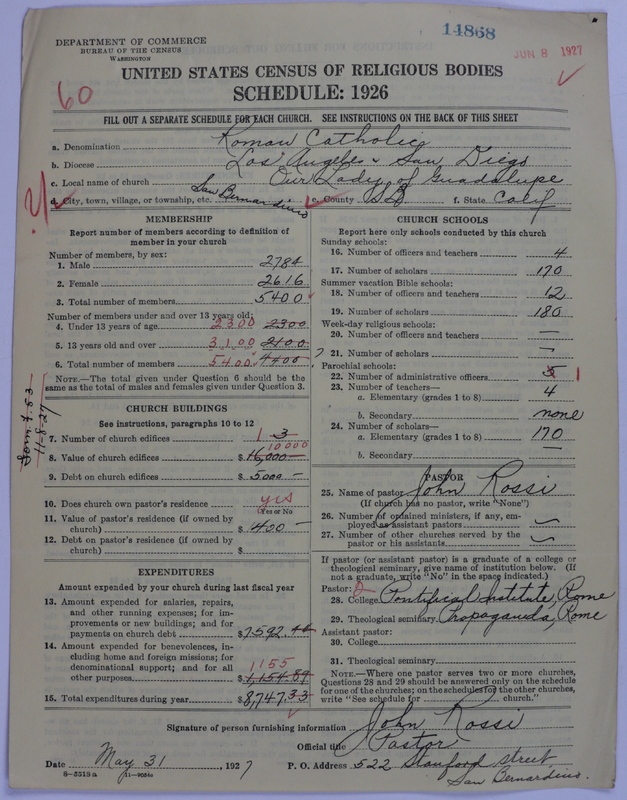 14868
DEPARTMENT OF COMMERCE
BUREAU OF THE CENSUS
WASHINGTON
JUN 8 1927
UNITED STATES CENSUS OF RELIGIOUS BODIES
60
SCHEDULE: 1926
FILL OUT A SEPARATE SCHEDULE FOR EACH CHURCH. SEE INSTRUCTIONS ON THE BACK OF THIS SHEET
a. Denomination Roman Catholic
b. Diocese Los Angeles & San Diego
c. Local name of church Our Lady of Guadalupe
d. City, town, village, or township, etc. San Bernardino e. County S B f. State Calif
MEMBERSHIP
Report number of members according to definition of
member in your church
Number of members, by sex:
1. Male 2784
2. Female 2616
3. Total number of members 5400
Number of members under and over 13 years old:
4. Under 13 years of age 2300 2300
5. 13 years old and over 3100 2100
6. Total number of members 5400 4400
NOTE.—The total given under Question 6 should be the
same as the total of males and females given under Question 3.
11-8-27
CHURCH BUILDINGS
See instructions, paragraphs 10 to 12
7. Number of church edifices 1 3
10000
8. Value of church edifices $16,000—
9. Debt on church edifices $5000—
10. Does church own pastor's residence yes
Yes or No
11. Value of pastor's residence (if owned by
church) $400—
12. Debt on pastor's residence (if owned by
church) $
EXPENDITURES
Amount expended by your church during last fiscal year
13. Amount expended for salaries, repairs,
and other running expenses; for im-
provements or new buildings; and for
payments on church debt $7,592.44
14. Amount expended for benevolences, in-
cluding home and foreign missions; for
denominational support; and for all 1155
other purposes $1,154.89
15. Total expenditures during year $8,747.33
CHURCH SCHOOLS
Report here only schools conducted by this church
Sunday schools:
16. Number of officers and teachers 4
17. Number of scholars 170
Summer vacation Bible schools:
18. Number of officers and teachers 12
19. Number of scholars 180
Week-day religious schools:
20. Number of officers and teachers —
? 21. Number of scholars —
Parochial schools:
22. Number of administrative officers 5 1
23. Number of teachers—
a. Elementary (grades 1 to 8) 4
b. Secondary none
24. Number of scholars—
a. Elementary (grades 1 to 8) 170
b. Secondary —
PASTOR
25. Name of pastor John Rossi
(If church has no pastor, write "None")
26. Number of ordained ministers, if any, em-
ployed as assistant pastors
27. Number of other churches served by the
pastor or his assistants
If pastor (or assistant pastor) is a graduate of a college or
theological seminary, give name of institution below. (If
not a graduate, write "No" in the space indicated.)
Pastor: 2
28. College Pontifical Institute, Rome
29. Theological seminary Propaganda, Rome
Assistant pastor:
30. College
31. Theological seminary
NOTE.—Where one pastor serves two or more churches,
Questions 28 and 29 should be answered only on the schedule
for one of the churches; on the schedules for the other churches,
write "See schedule for church."
Signature of person furnishing information John Rossi
Official title Pastor
Date May 31, 1927 P. O. Address 522 Stanford street
8-3318a 11-9054a San Bernardino.